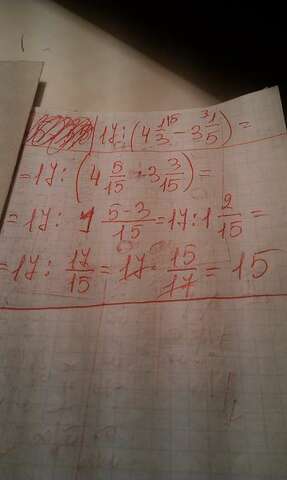 17:(4 1/3 - 3 1/5)=
=17:(4 5/15 - 3 3/15)=
=17: 1 5-3/15 =17:1 2/15=
=17: 17/15 = 17· 15/17 = 15